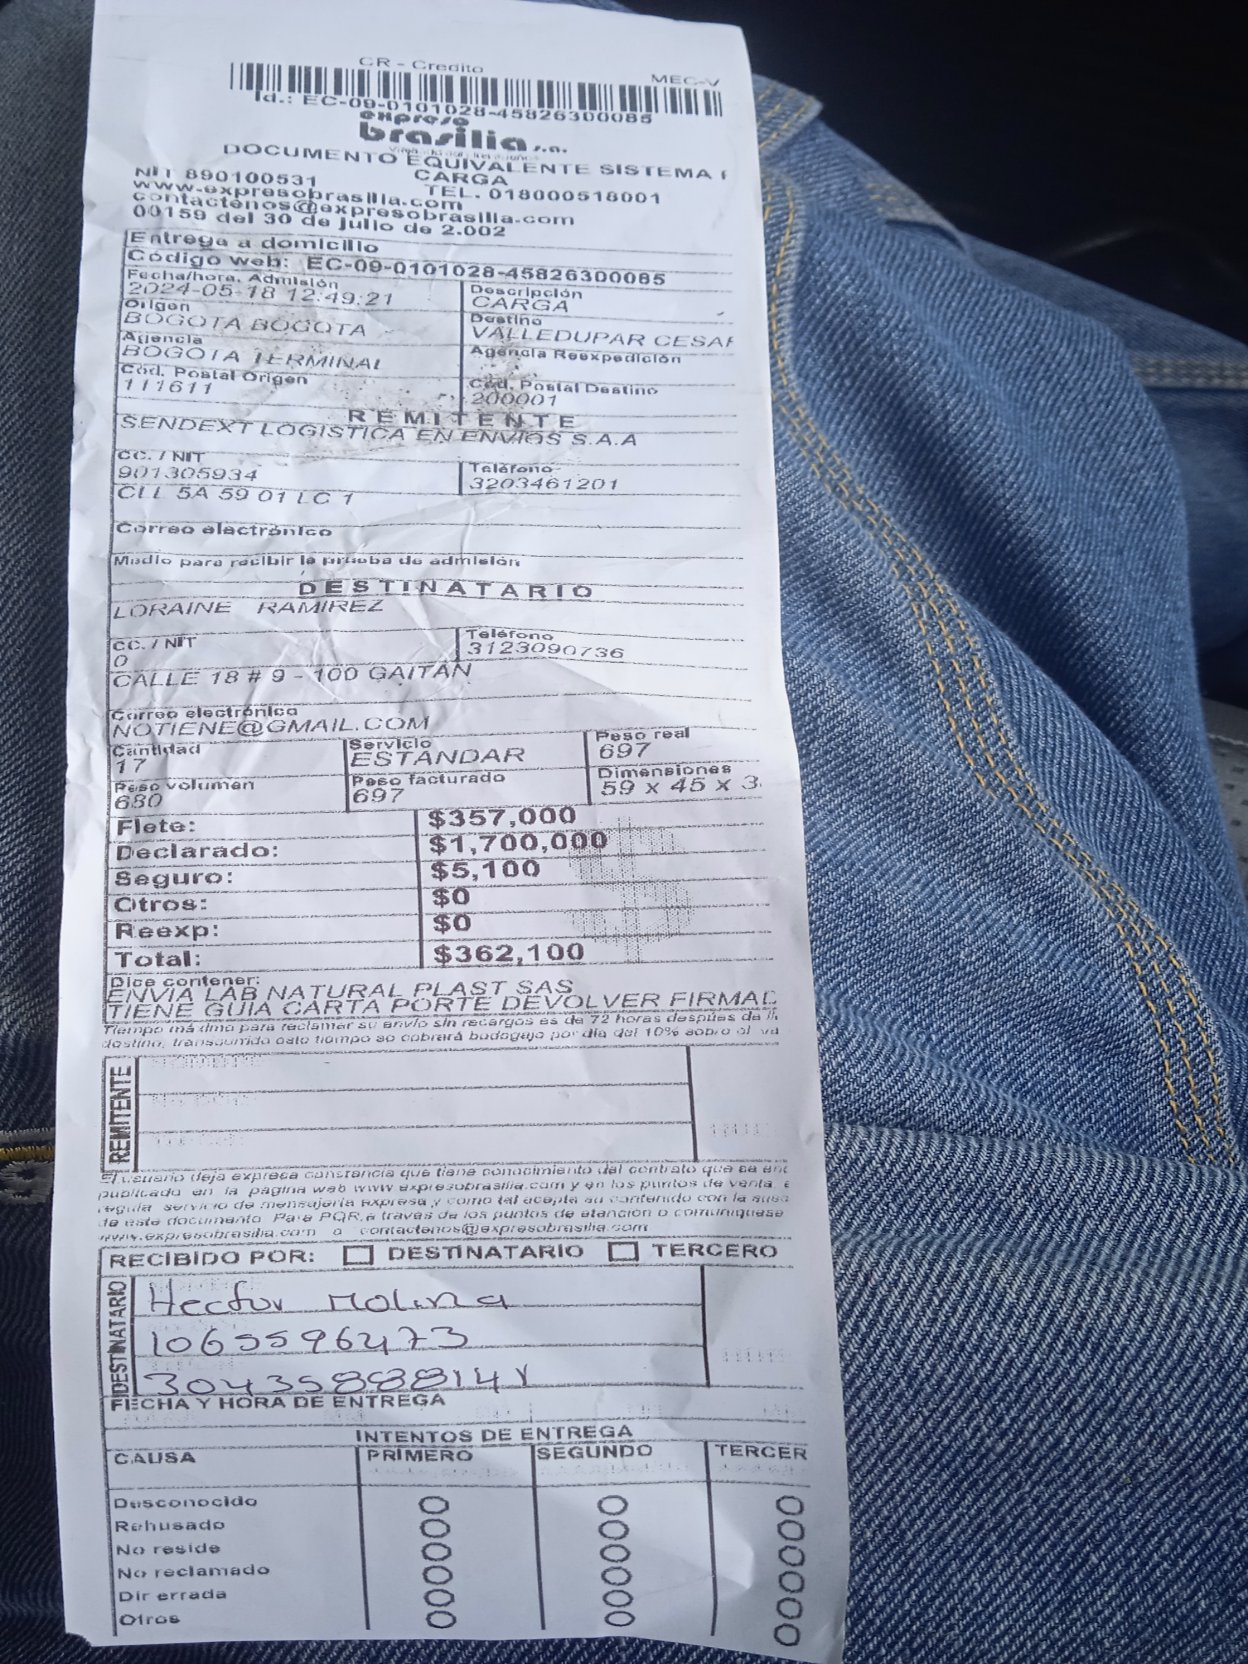 CR - Credito
MEC-V
Id.: EC-09-0101028-45826300085
expreso
brasilia s.a.
DOCUMENTO EQUIVALENTE SISTEMA
CARGA
NIT 890100531 TEL. 018000518001
www.expresobrasilia.com
contactenos@expresobrasilia.com
00159 del 30 de julio de 2.002
Entrega a domicilio
Código web: EC-09-0101028-45826300085
Fecha/hora. Admisión Descripción
2024-05-18 12:49:21 CARGA
Origen Destino
BOGOTA BOGOTA VALLEDUPAR CESAR
Agencia Agencia Reexpedición
BOGOTA TERMINAL
Cód. Postal Origen Cód. Postal Destino
111611 200001
REMITENTE
SENDEXT LOGISTICA EN ENVIOS S.A.A
CC. / NIT Teléfono
901305934 3203461201
CLL 5A 59 01 LC 1
Correo electrónico
Medio para recibir la prueba de admisión
DESTINATARIO
LORAINE RAMIREZ
CC. / NIT Teléfono
0 3123090736
CALLE 18 # 9 - 100 GAITAN
Correo electrónico
NOTIENE@GMAIL.COM
Cantidad Servicio Peso real
17 ESTANDAR 697
Peso volumen Peso facturado Dimensiones
680 697 59 x 45 x 3
Flete: $357,000
Declarado: $1,700,000
Seguro: $5,100
Otros: $0
Reexp: $0
Total: $362,100
Dice contener:
ENVIA LAB NATURAL PLAST SAS
TIENE GUIA CARTA PORTE DEVOLVER FIRMAD
Tiempo máximo para reclamar su envío sin recargos es de 72 horas después de
destino, transcurrido este tiempo se cobrará bodegaje por día del 10% sobre el
REMITENTE
El usuario deja expresa constancia que tiene conocimiento del contrato que se
publicado en la página web www.expresobrasilia.com y en los puntos de venta,
regula servicio de mensajería expresa y como tal acepta su contenido con la
de este documento. Para PQR, a través de los puntos de atención o comuníquese
www.expresobrasilia.com o contactenos@expresobrasilia.com
RECIBIDO POR: DESTINATARIO TERCERO
DESTINATARIO
Hector Molina
1065596473
3043588814
FECHA Y HORA DE ENTREGA
INTENTOS DE ENTREGA
CAUSA PRIMERO SEGUNDO TERCER
Desconocido
Rehusado
No reside
No reclamado
Dir errada
Otros